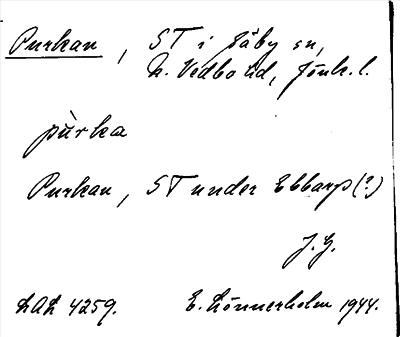 Purkan, ST i Säby sn,
N. Vedbo hd, Jönk. l.
pùrka
Purkan, ST under Ebbarp (?)
J. G.
LAL 4259. E. Lönnerholm 1944.